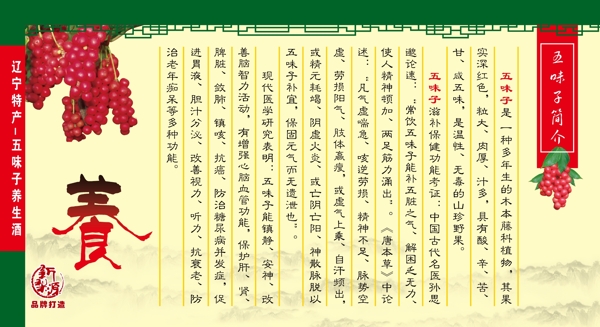 五味子简介
五味子是一种多年生的木本藤科植物，其果
实深红色，粒大、肉厚、汁多，具有酸、辛、苦、
甘、咸五味，是温性、无毒的山珍野果。
五味子滋补保健功能考证：中国古代名医孙思
邈论述：“常饮五味子能补五脏之气、解困乏无力、
使人精神顿加、两足筋力涌出”。《唐本草》中论
述：“凡气虚喘急、咳逆劳损、精神不足、脉势空
虚、劳损阳气、肢体羸瘦，或虚气上乘、自汗频出，
或精元耗竭、阴虚火炎、或亡阴亡阳、神散脉脱以
五味子补宜，保固元气而无遗泄也”。
现代医学研究表明：五味子能镇静、安神、改
善脑智力活动，有增强心脑血管功能，保护肝、肾、
脾脏、敛肺、镇咳、抗癌、防治糖尿病并发症，促
进胃液、胆汁分泌、改善视力、听力、抗衰老、防
治老年痴呆等多种功能。
養
品牌打造
辽宁特产-五味子养生酒